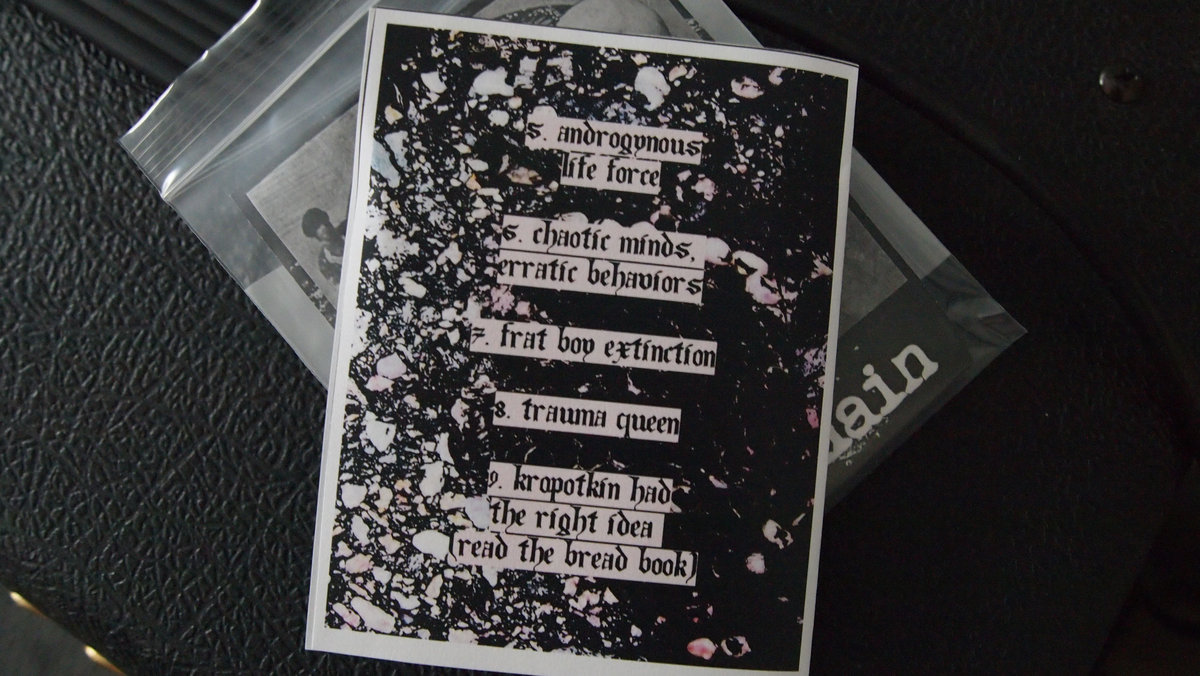 5. androgynous
life force
6. chaotic minds,
erratic behaviors
7. frat boy extinction
8. trauma queen
9. kropotkin had
the right idea
(read the bread book)